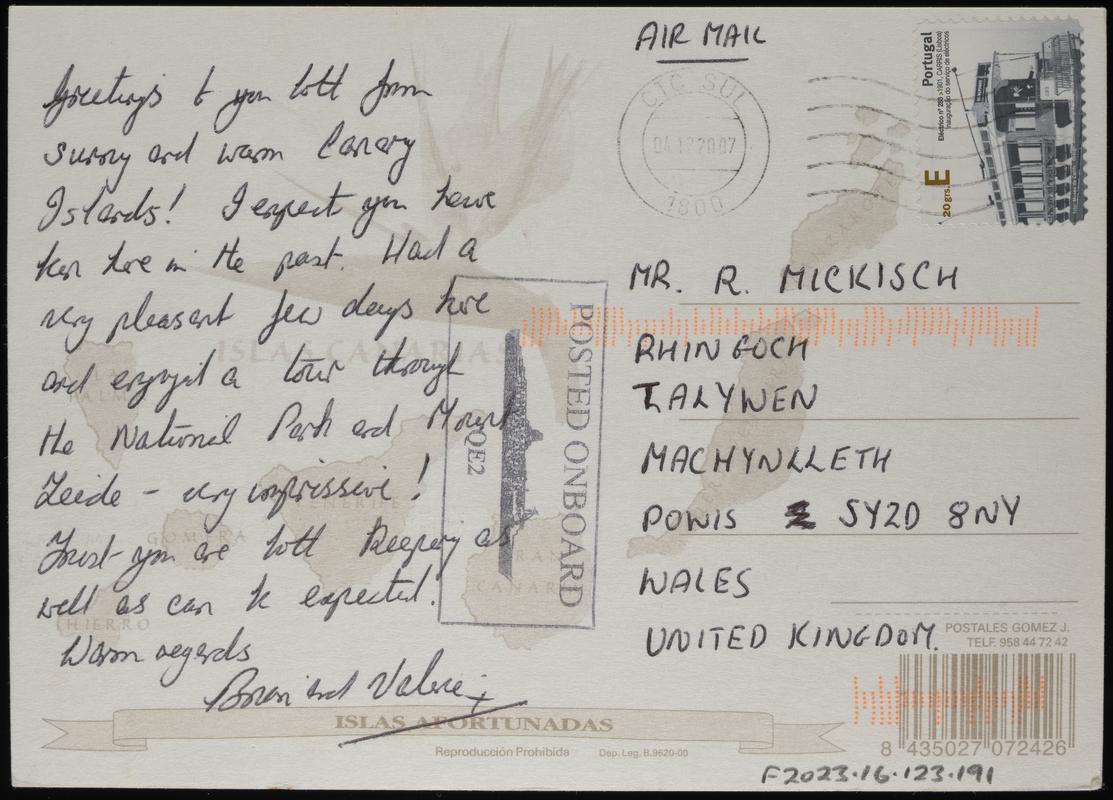 Greetings to you both from
sunny and warm Canary
Islands! I expect you have
been here in the past. Had a
very pleasant few days here
and enjoyed a tour through
the National Park and Mount
Teide - very impressive!
Trust you are both keeping as
well as can be expected!
Warm regards
Brian and Valerie x
AIR MAIL
CTC SUL
04 12 2007
1800
Portugal
Eléctrico nº 283 >1901, CARRIS (Lisboa)
Inauguração do serviço de eléctricos
20 grs. E
MR. R. MICKISCH
RHIN GOCH
TALYWEN
MACHYNLLETH
POWIS SY20 8NY
WALES
UNITED KINGDOM.
POSTED ONBOARD
QE2
ISLAS CANARIAS
LA PALMA
GOMERA
HIERRO
TENERIFE
GRAN CANARIA
ISLAS AFORTUNADAS
Reproducción Prohibida Dep. Leg. B.9620-00
POSTALES GOMEZ J.
TELF. 958 44 72 42
8 435027 072426
F2023.16.123.191